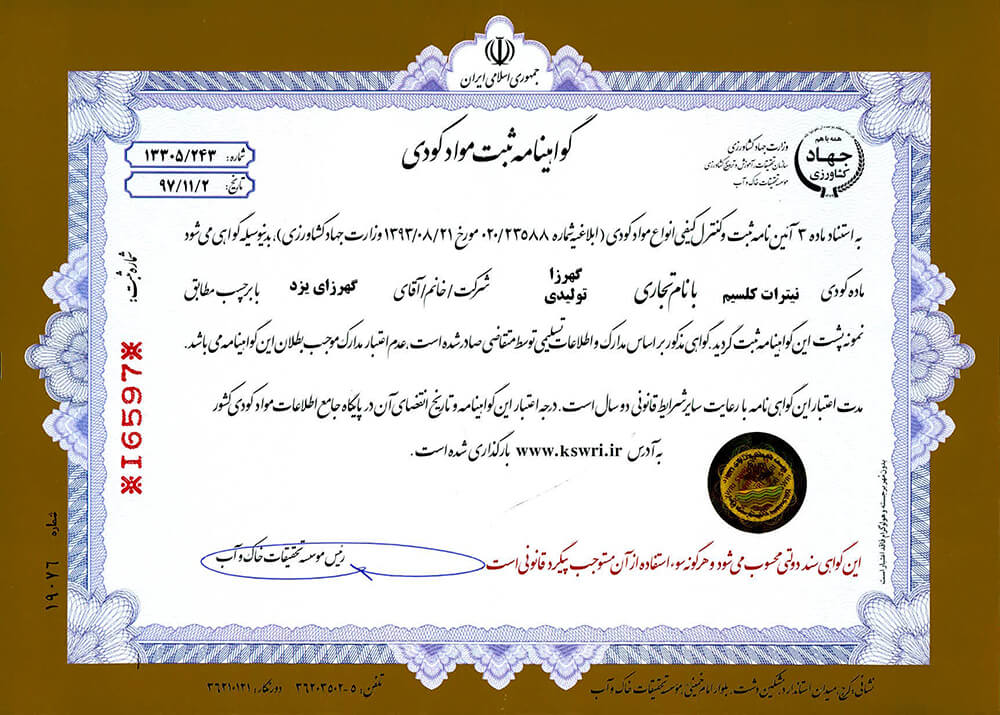 جمهوری اسلامی ایران
گواهینامه ثبت مواد کودی
همه با هم
جهاد
کشاورزی
وزارت جهاد کشاورزی
سازمان تحقیقات، آموزش و ترویج کشاورزی
موسسه تحقیقات خاک و آب
شماره: ۱۳۳۰۵/۲۴۳
تاریخ: ۹۷/۱۱/۲
به استناد ماده ۳ آئین نامه ثبت و کنترل کیفی انواع مواد کودی (ابلاغیه شماره ۰۲۰/۲۳۵۸۸ مورخ ۱۳۹۳/۰۸/۲۱ وزارت جهاد کشاورزی)، بدینوسیله گواهی می شود
ماده کودی نیترات کلسیم با نام تجاری گهرزا تولیدی شرکت/خانم/آقای گهرزای یزد با برچسب مطابق
نمونه پشت این گواهینامه ثبت گردید. گواهی مذکور بر اساس مدارک و اطلاعات تسلیمی توسط متقاضی صادر شده است، عدم اعتبار مدارک موجب بطلان این گواهینامه می باشد.
مدت اعتبار این گواهی نامه با رعایت سایر شرایط قانونی دو سال است. درجه اعتبار این گواهینامه و تاریخ انقضای آن در پایگاه جامع اطلاعات مواد کودی کشور
به آدرس www.kswri.ir بارگذاری شده است.
این گواهی سند دولتی محسوب می شود و هرگونه سوء استفاده از آن مستوجب پیگرد قانونی است
رئیس موسسه تحقیقات خاک و آب
شماره ثبت:
※16597※
شماره ۱۹۰۷۶
بدون مهر برجسته و هولوگرام فاقد اعتبار است
نشانی: کرج، میدان استاندارد، مشکین دشت، بلوار امام خمینی، موسسه تحقیقات خاک و آب
تلفن: ۵-۳۶۲۰۳۵۰۲ دورنگار: ۳۶۲۱۰۱۲۱